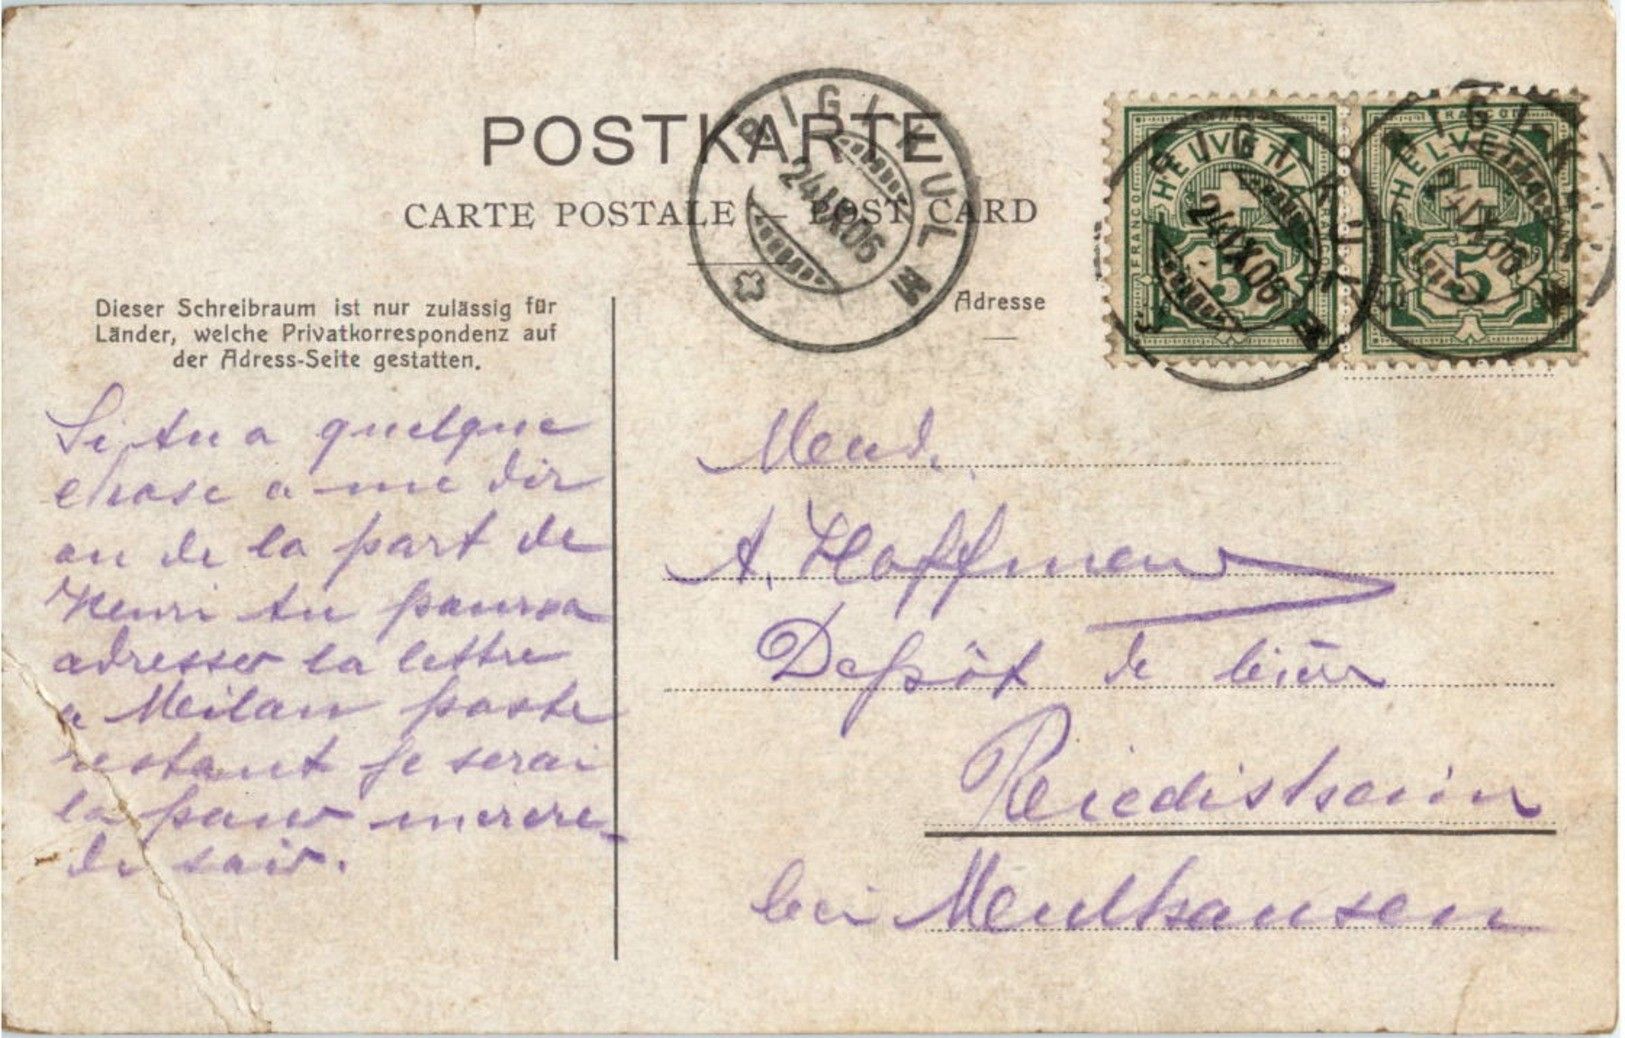 POSTKARTE
CARTE POSTALE — POST CARD
RIGI KULM
24.IX.06
HELVETIA
FRANCO
5
RIGI KULM
24.IX.06
HELVETIA
FRANCO
5
RIGI KULM
24.IX.06
Dieser Schreibraum ist nur zulässig für
Länder, welche Privatkorrespondenz auf
der Adress-Seite gestatten.
Adresse
Si tu a quelque
chose a me dir
ou de la part de
Henri tu pourra
adresser la lettre
a Meilan poste
restant je serai
la pour mercre-
di soir.
A. Hoffman
Depôt de bière
Riedisheim
bei Meulhausen